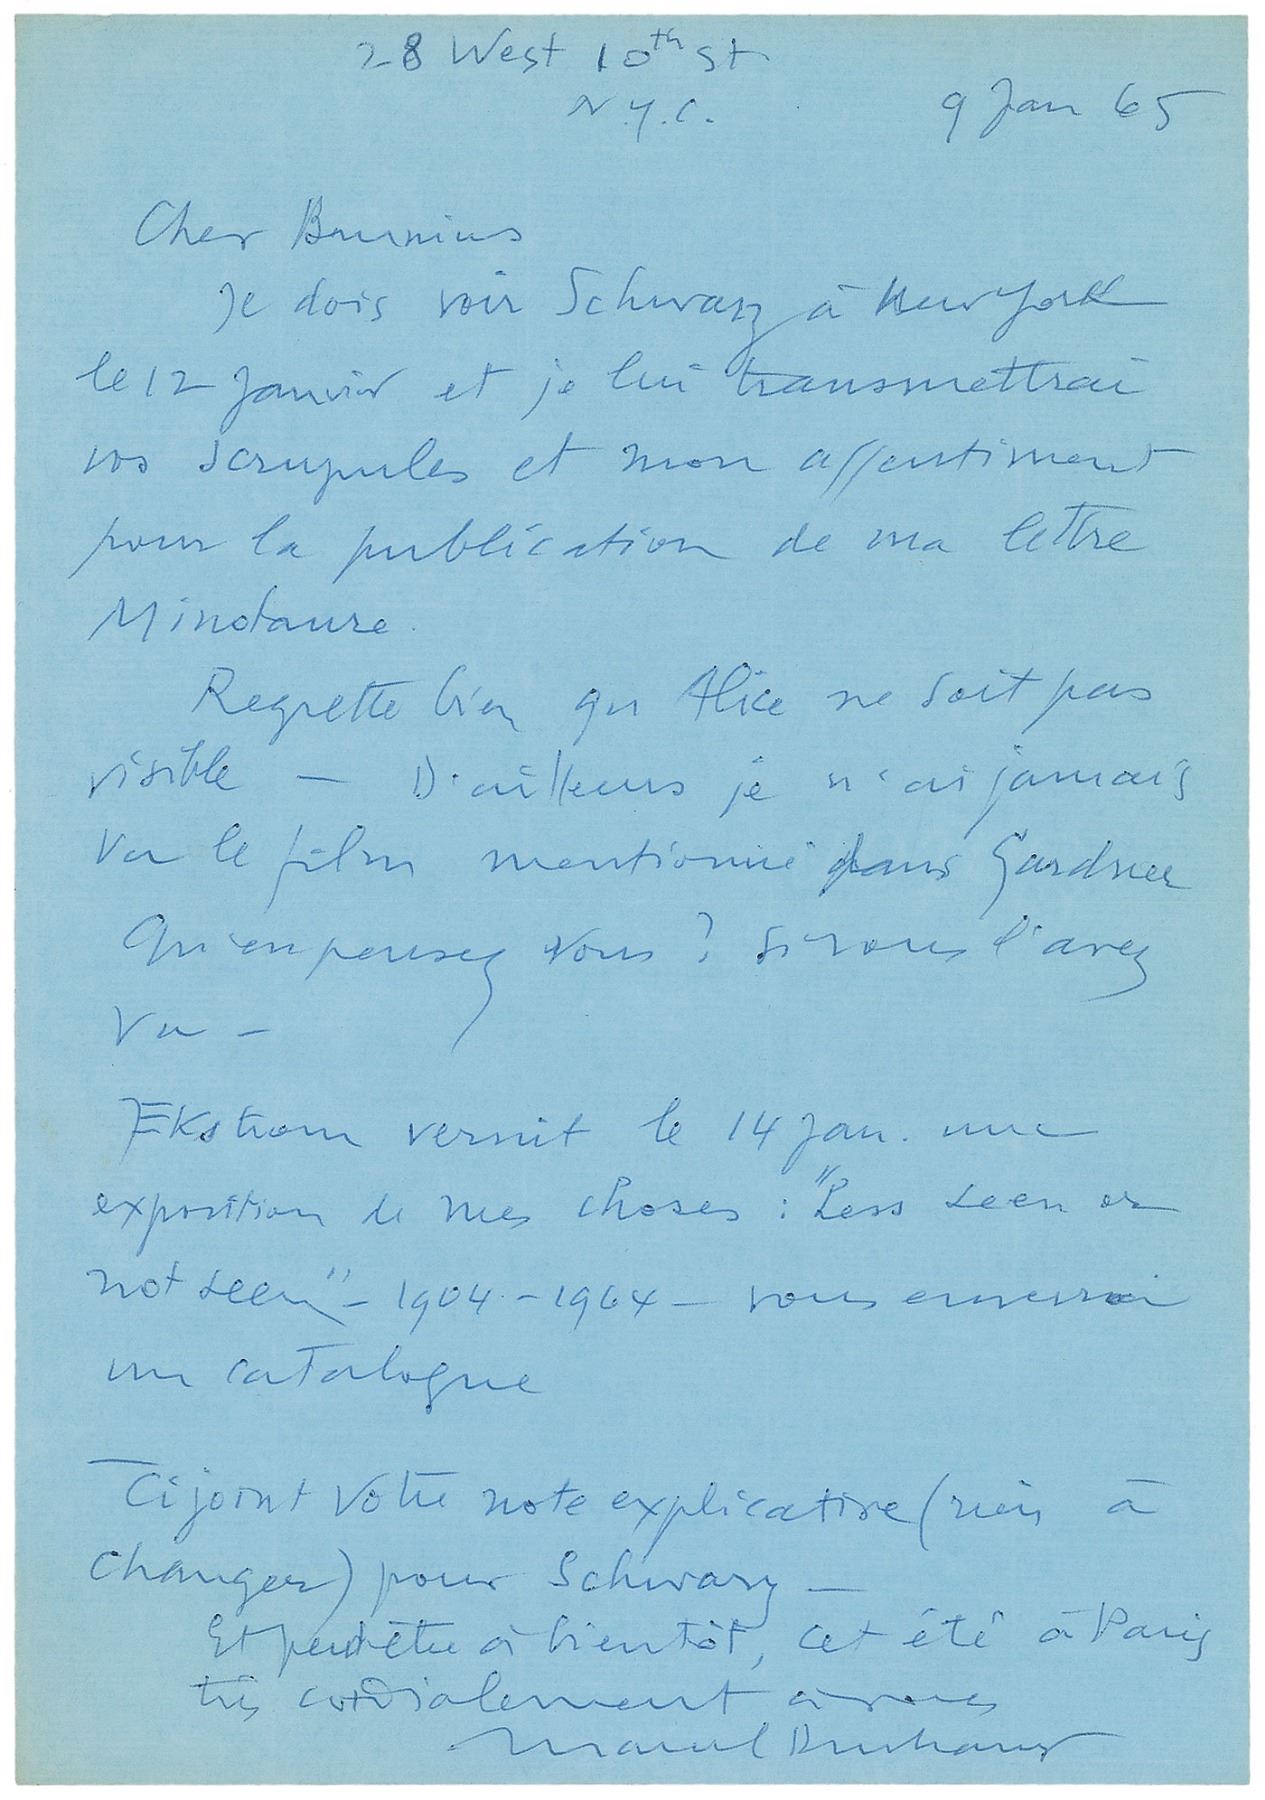 28 West 10th St
N.Y.C.
9 Jan 65
Cher Brunius
Je dois voir Schwarz à New York
le 12 Janvier et je lui transmettrai
vos scrupules et mon assentiment
pour la publication de ma lettre
Minotaure.
Regrette bien que Alice ne soit pas
visible — D'ailleurs je n'ai jamais
vu le film mentionné dans Gardner
Qu'en pensez vous ? Si vous l'avez
vu —
Ekstrom vernit le 14 Jan. une
exposition de mes choses : "Less seen or
not seen" – 1904 – 1964 — vous enverrai
un catalogue
— Ci joint votre note explicative (rien à
changer) pour Schwarz —
Et peut être à bientôt, cet été à Paris
très cordialement à vous
Marcel Duchamp